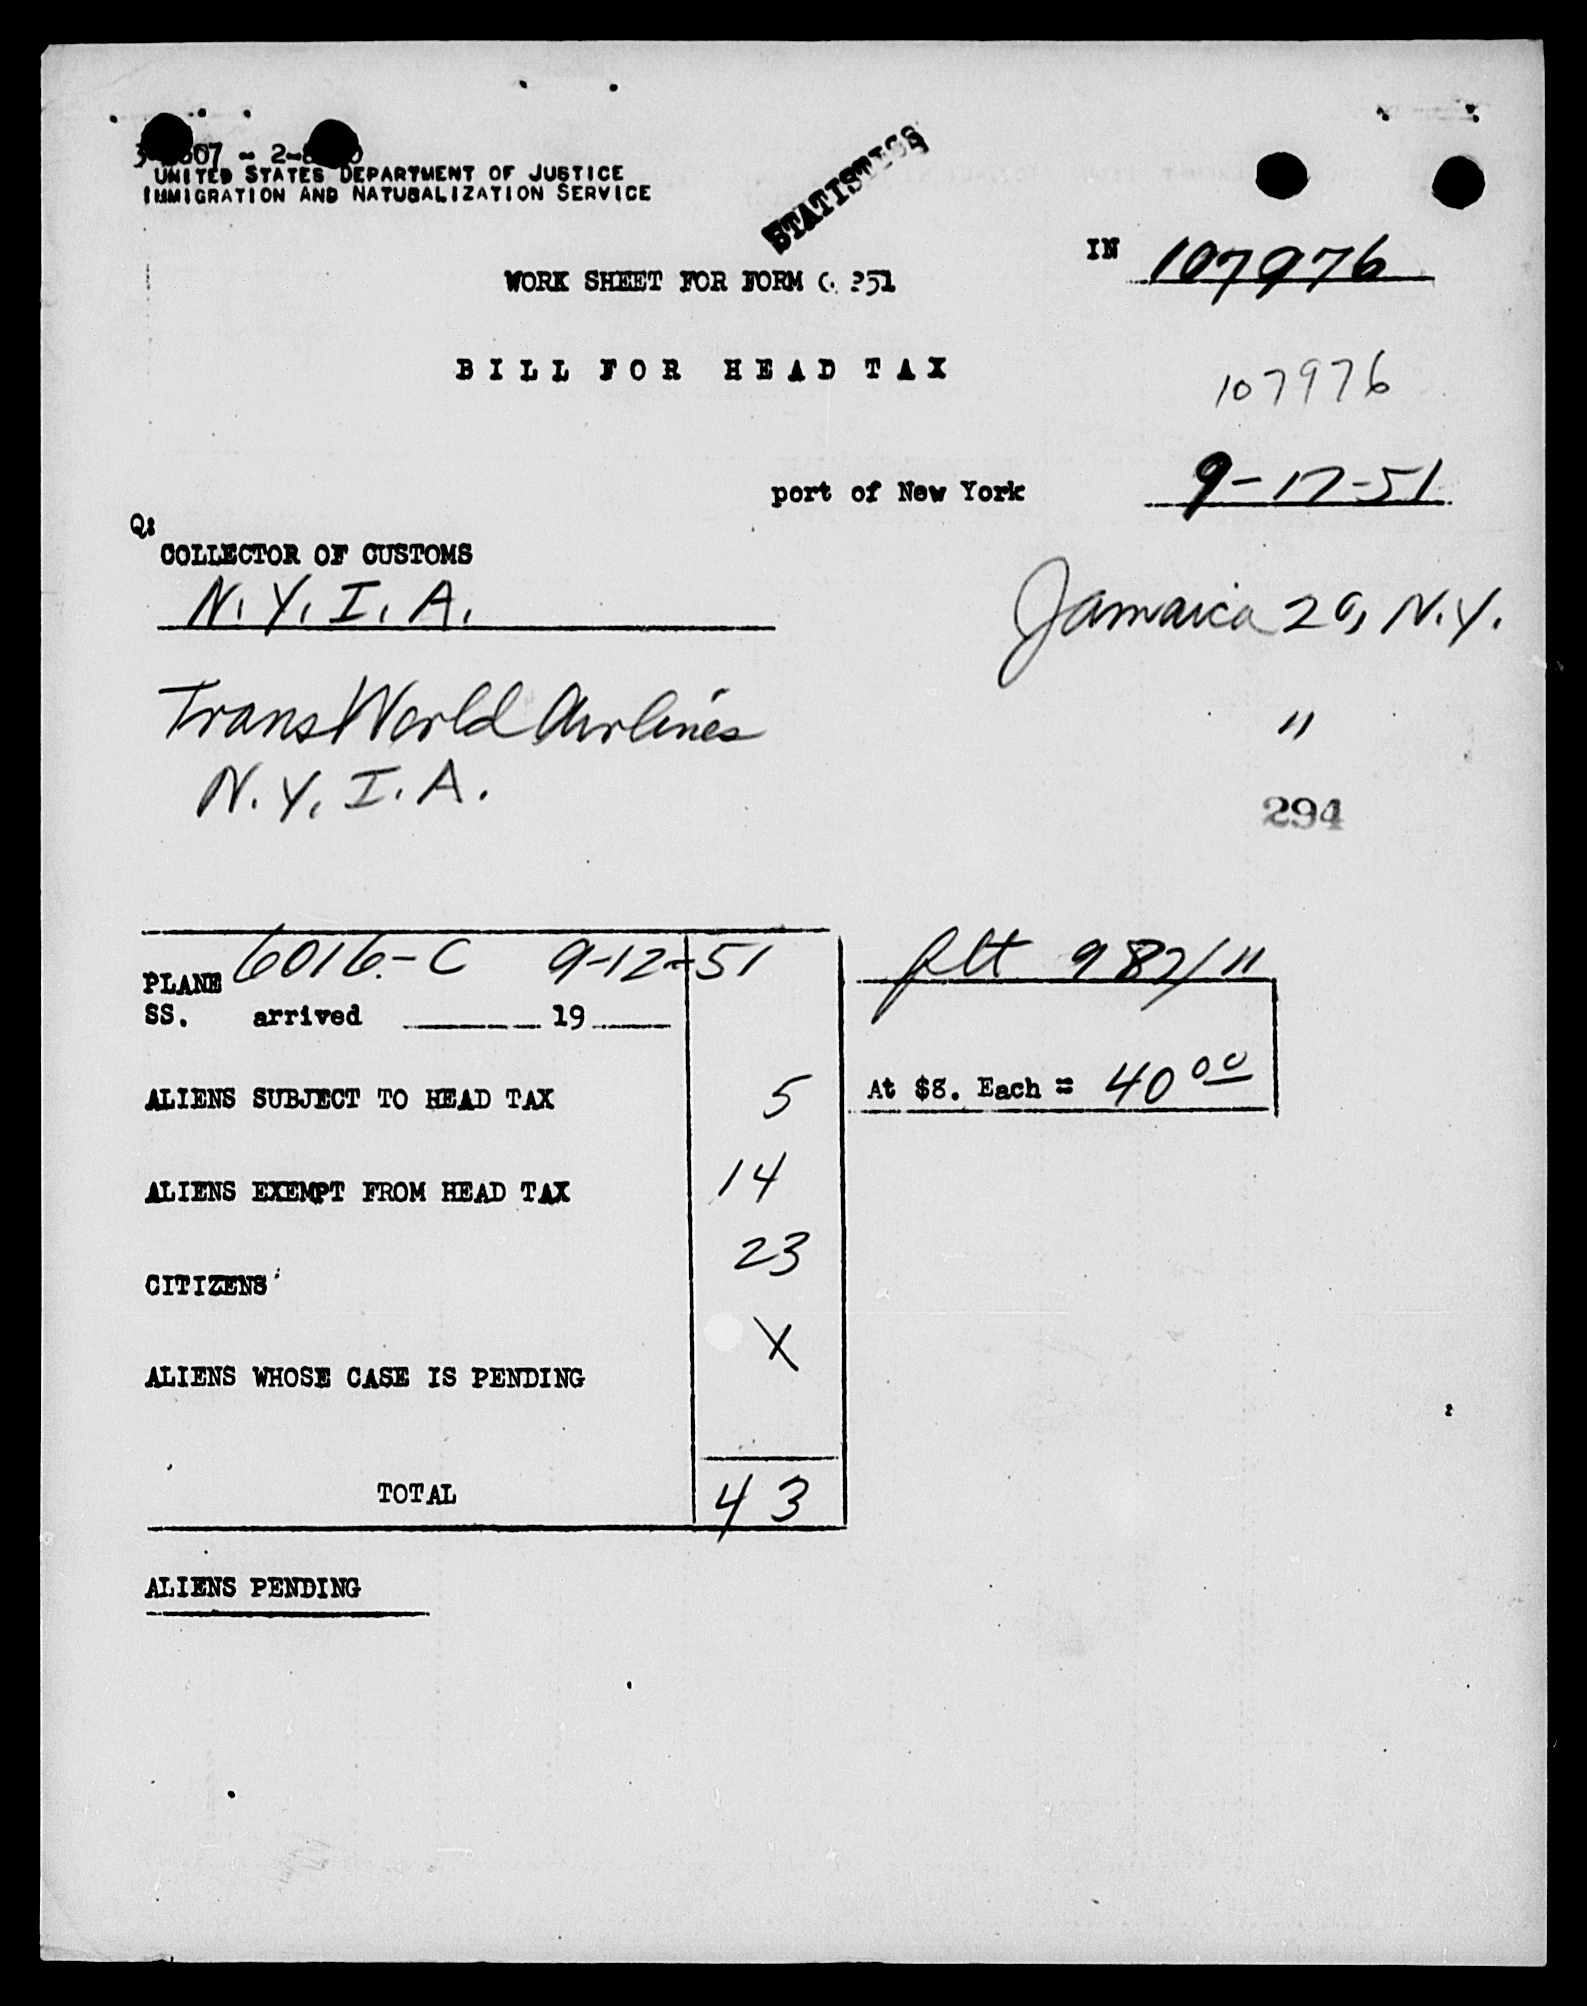 UNITED STATES DEPARTMENT OF JUSTICE
IMMIGRATION AND NATURALIZATION SERVICE
STATISTICS
IN 107976
WORK SHEET FOR FORM
BILL FOR HEAD TAX
107976
port of New York 9-17-51
COLLECTOR OF CUSTOMS
N.Y.I.A. Jamaica 20, N.Y.
Trans World Airlines "
N.Y.I.A.
294
PLANE 6016-C 9-12-51 flt 987/11
SS. arrived 19
ALIENS SUBJECT TO HEAD TAX 5 At $8. Each = 40 00
ALIENS EXEMPT FROM HEAD TAX 14
CITIZENS 23
ALIENS WHOSE CASE IS PENDING X
TOTAL 43
ALIENS PENDING